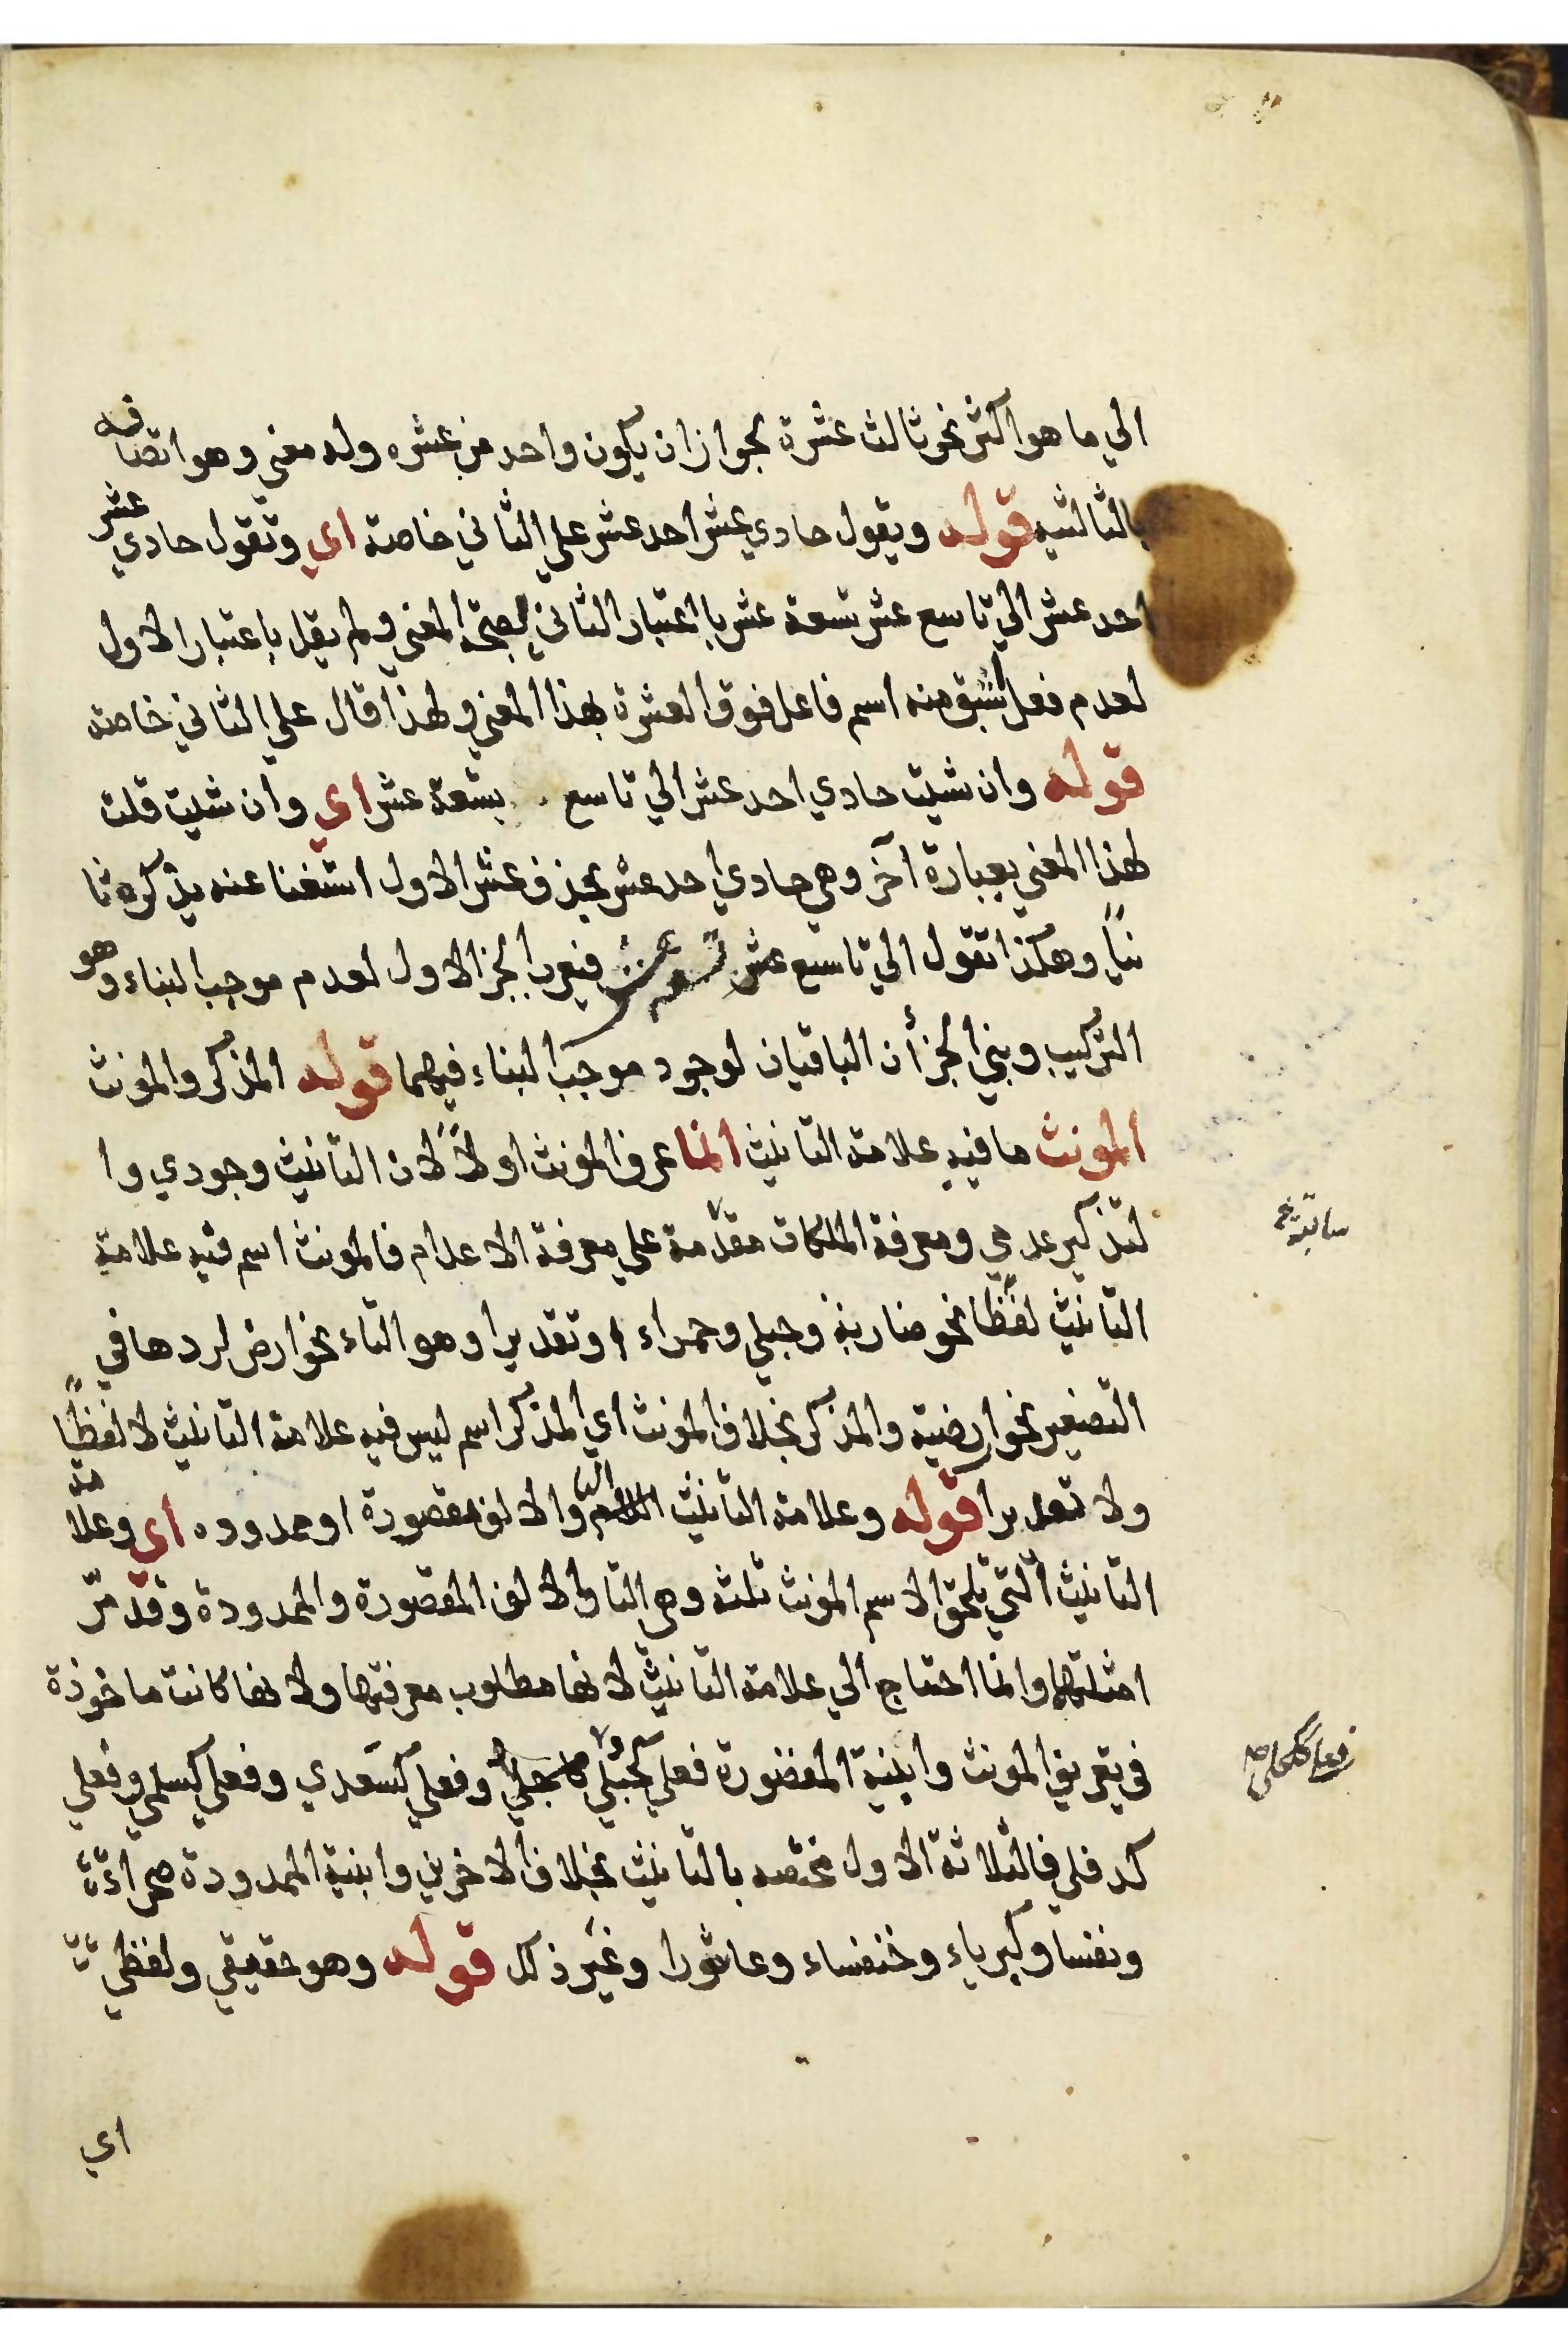 الي ما هو اكثر نحو ثالث عشرة لجواز ان يكون واحد من عشره وله معني وهو اتصافه
بالثالثيه قوله ويقول حادي عشر احد عشر علي الثاني خاصة اي وتقول حادي عشر
احد عشر الي تاسع عشر تسعة عشر باعتبار الثاني لصحة المعني ولم يقل باعتبار الاول
لعدم فعل اشتق منه اسم فاعل فوق العشرة بهذا المعني ولهذا قال علي الثاني خاصة
قوله وان شيت حادي احد عشر الي تاسع تسعة عشر اي وان شيت قلت
لهذا المعني بعبارة آخر وهي حادي احد عشر بحذف عشر الاول استغنا عنه بذكره ثا
نياً وهكذا تقول الي تاسع عشر تسعة عشر فيعرب الجز الاول لعدم موجب البناء وهو
التركيب وبني الجزأن الباقيان لوجود موجب البناء فيهما قوله المذكر والمونث
المونث ما فيه علامة التانيث انما عرف المونث اولاً لان التانيث وجودي وا
لتذكير عدمي ومعرفة الملكات مقدّمة علي معرفة الاعدام فالمونث اسم فيه علامة
التانيث لفظاً نحو ضاربة وحبلي وحمراء او تقديرا وهو التاء نحو ارض لردها في
التصغير نحو اريضية والمذكر بخلاف المونث اي المذكر اسم ليس فيه علامة التانيث لا لفظاً
ولا تقديرا قوله وعلامة التانيث التا والالف مقصورة او ممدوده اي وعلامة
التانيث التي تلحق الاسم المونث ثلثة وهي التا والالف المقصورة والممدودة وقد مرّ
امثلتها وانما احتاج الي علامة التانيث لانها مطلوب معرفتها ولانها كانت ماخوذة
في تعريف المونث وابنية المقصورة فعلي كحبلي وفعلي كسعدي وفعلي كسلمي وفعلي
كدفلي فالثلاثة الاول مختصه بالتانيث بخلاف الاخرين وابنية الممدودة صحراء
ونفسا وكبرياء وخنفساء وعاشورا وغير ذلك قوله وهو حقيقي ولفظي
اي